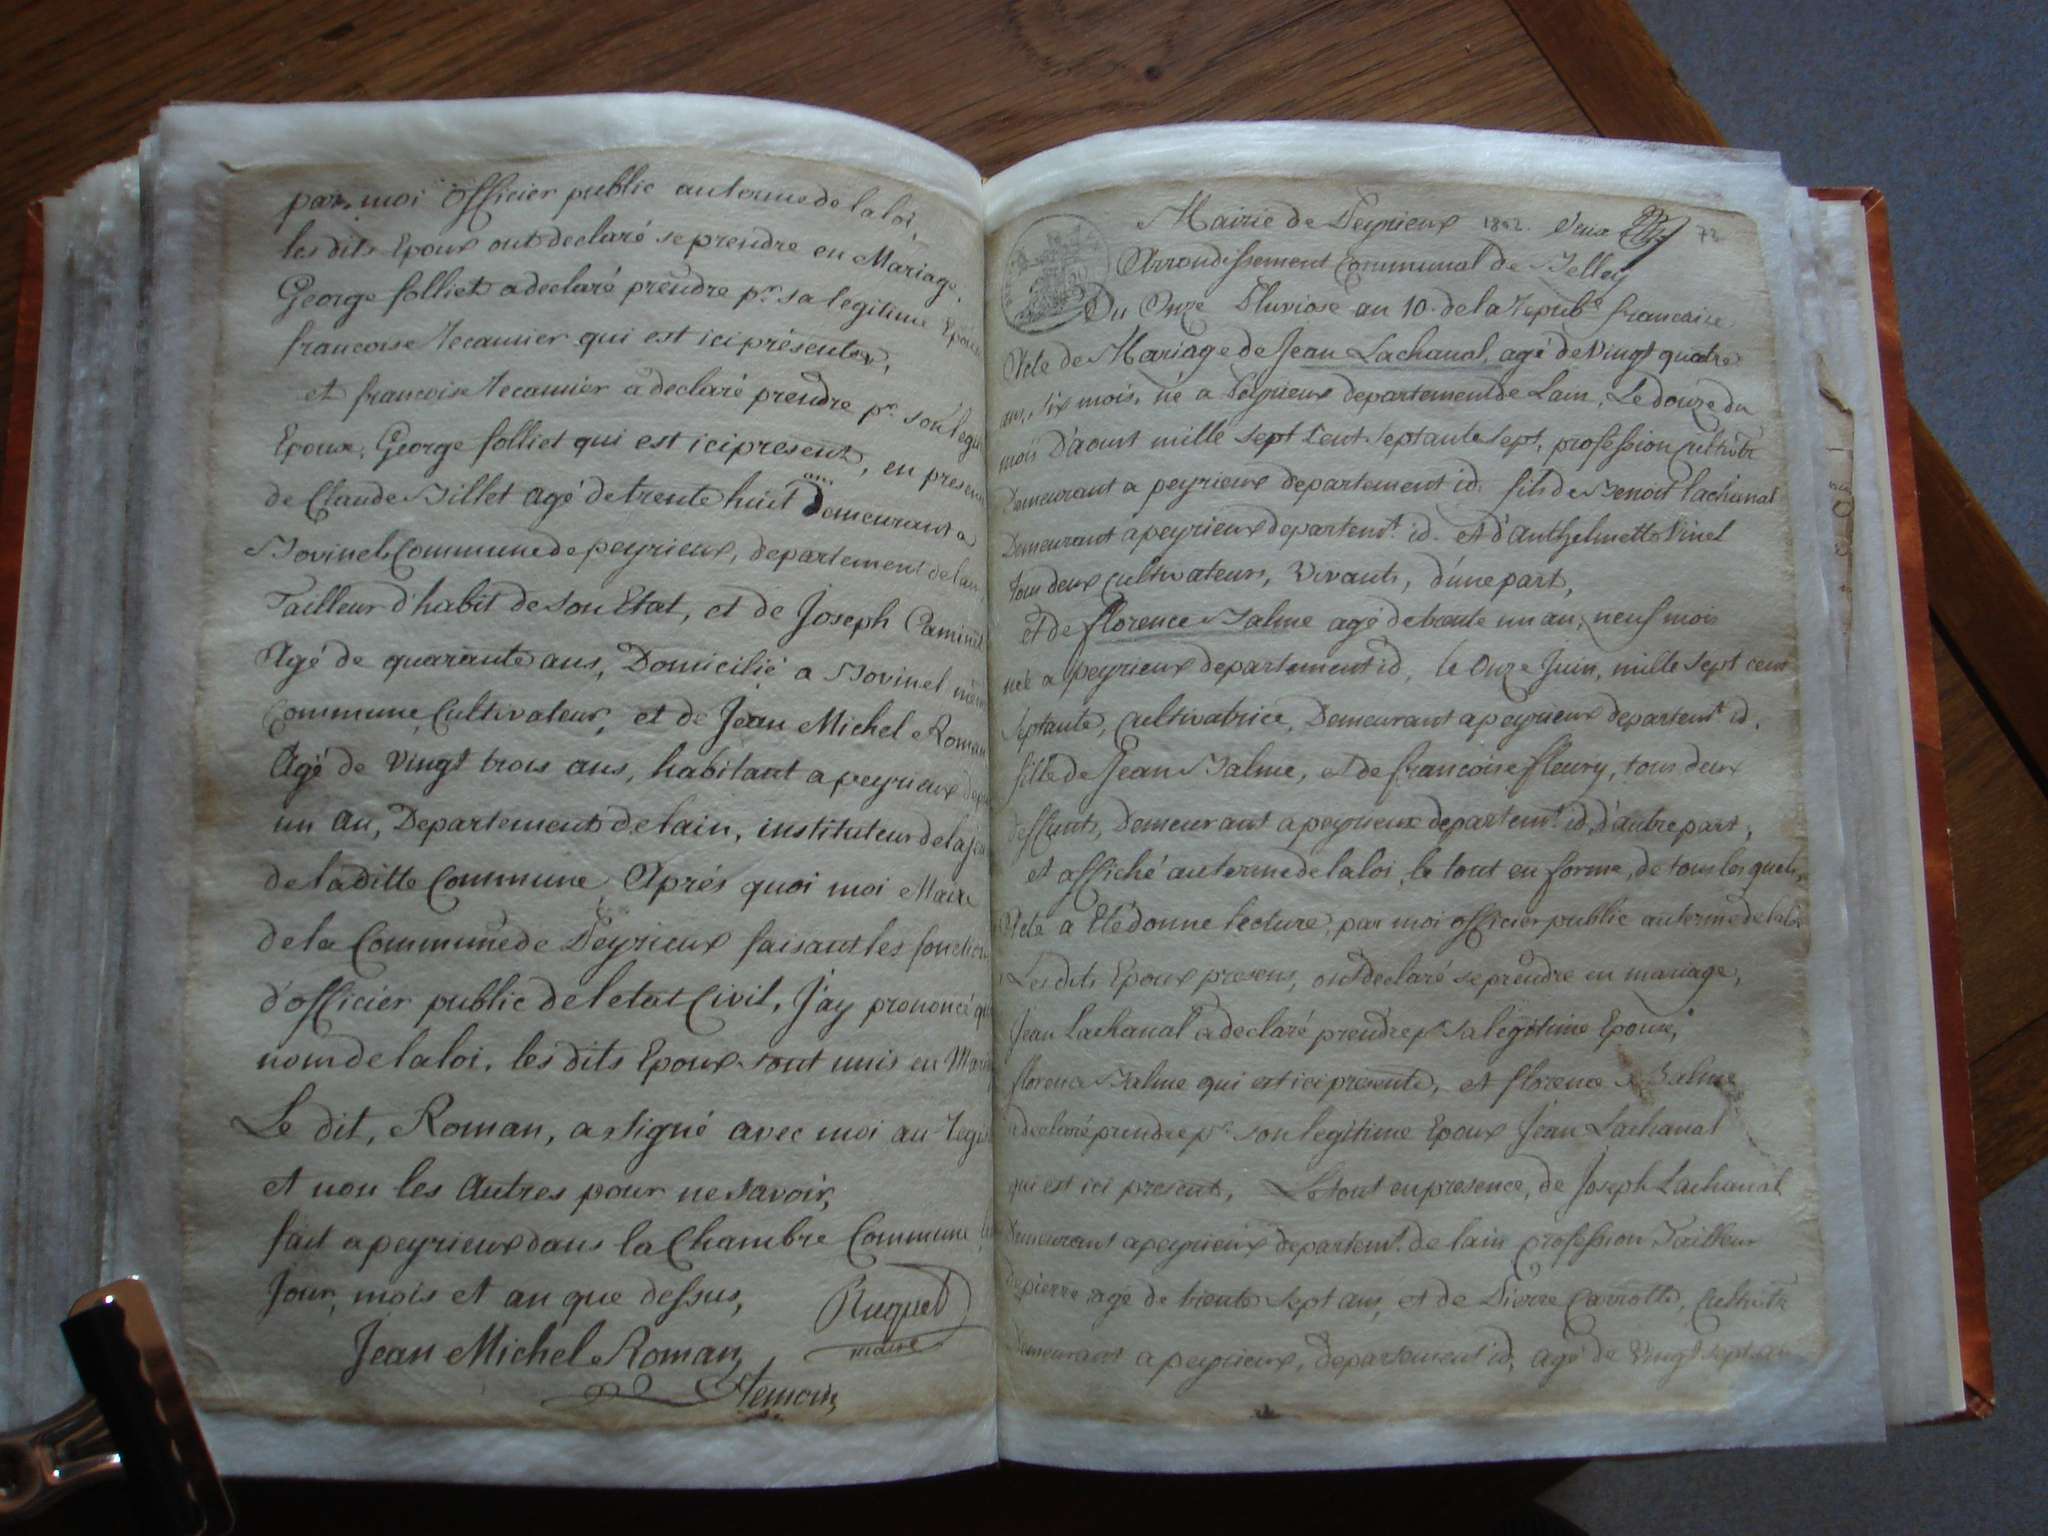 par moi officier public au terme de la loi,
les dits Epoux ont declaré se prendre en Mariage,
George folliet a declaré prendre pr. sa legitime Epouse
francoise Recamier qui est ici présente,
et francoise Recamier a declaré prendre pr. son legi
Epoux, George folliet qui est ici present, en presen
de Claude Billet agé de trente huit ans Demeurant a
Bovinel Commune de peyrieux, departement de lain
Tailleur d'habit de son Etat, et de Joseph
Agé de quarante ans, Domicilié a Bovinel même
Commune, Cultivateur, et de Jean Michel Roman
Agé de vingt trois ans, habitant a peyrieux depui
un an, Departement de lain, instituteur de la
de la ditte Commune, Aprés quoi moi Maire
de la Commune de Peyrieux faisant les fonction
d'officier public de letat Civil, J'ay prononcé qu
nom de la loi, les dits Epoux sont unis en Mari
Le dit, Roman, a signé avec moi au Regis
et non les autres pour ne savoir,
fait a peyrieux dans la Chambre Commune
Jour, mois et an que dessus,
Ruquet
maire
Jean Michel Roman
temoin,
Mairie de Peyrieux 1802. 72
Arrondissement Communal de Belley
Du Onze Pluviose an 10. de la Repube. francaise
Acte de Mariage de Jean Lachanal, agé de Vingt quatre
ans, six mois, né a Peyrieux departement de Lain, Le douze du
mois D'aoust mille sept Cent septante sept, profession Cultivatr
Demeurant a peyrieux departement id. fils de Benoit lachanal
Demeurant a peyrieux departemt. id. et d'Anthelmette Vinel
tous deux Cultivateurs, Vivants, d'une part,
et de florence Balme agé de trente un an, neuf mois
née a peyrieux departement id, le Onze Juin, mille sept cent
septante, Cultivatrice, Demeurant a peyrieux departemt. id.
fille de Jean Balme, et de francoise fleury, tous deux
deffunts, demeurant a peyrieux departemt. id, d'autre part,
et affiché au terme de la loi, le tout en forme, de tous les quels
Acte a Eté donne lecture, par moi officier public au terme de la loi
Les dits Epoux presens, ont declaré se prendre en mariage,
Jean Lachanal a declaré prendre pr sa legitime Epouse,
florence Balme qui est ici presente, et florence Balme
a declaré prendre pr. son legitime Epoux Jean Lachanal
qui est ici present, Le tout en presence, de Joseph Lachanal
Demeurant a peyrieux departemt. de lain profession Tailleur
de pierre agé de trente sept ans, et de Pierre Carrotte, Cultivatr
Demeurant a peyrieux, departement id, agé de Vingt sept an